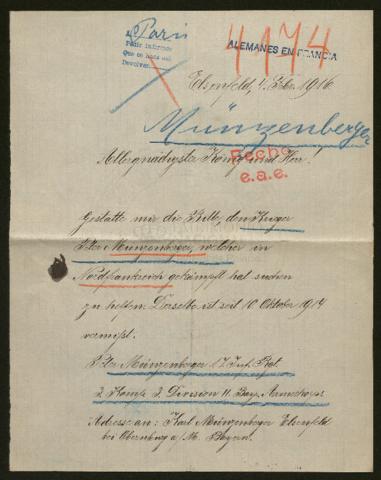 Paris
Pedir informes
Que se haga así
Devolver
4174
ALEMANES EN FRANCIA
Elsenfeld, 4. Febr. 1916
Münzenberger
Allergnädigster König und Herr!
Hecho
e.a.e.
Gestatte mir die Bitte, den
Peter Münzenberger, welcher in
Nordfrankreich gekämpft hat suchen
zu helfen. Derselbe ist seit 10. Oktober 1914
vermißt.
Peter Münzenberger 17. Inf. Rgt.
3. Komp. 3. Division II. Bay. Armeekorps
Adresse an: Karl Münzenberger Elsenfeld
bei Obernburg a/M. Bayern.